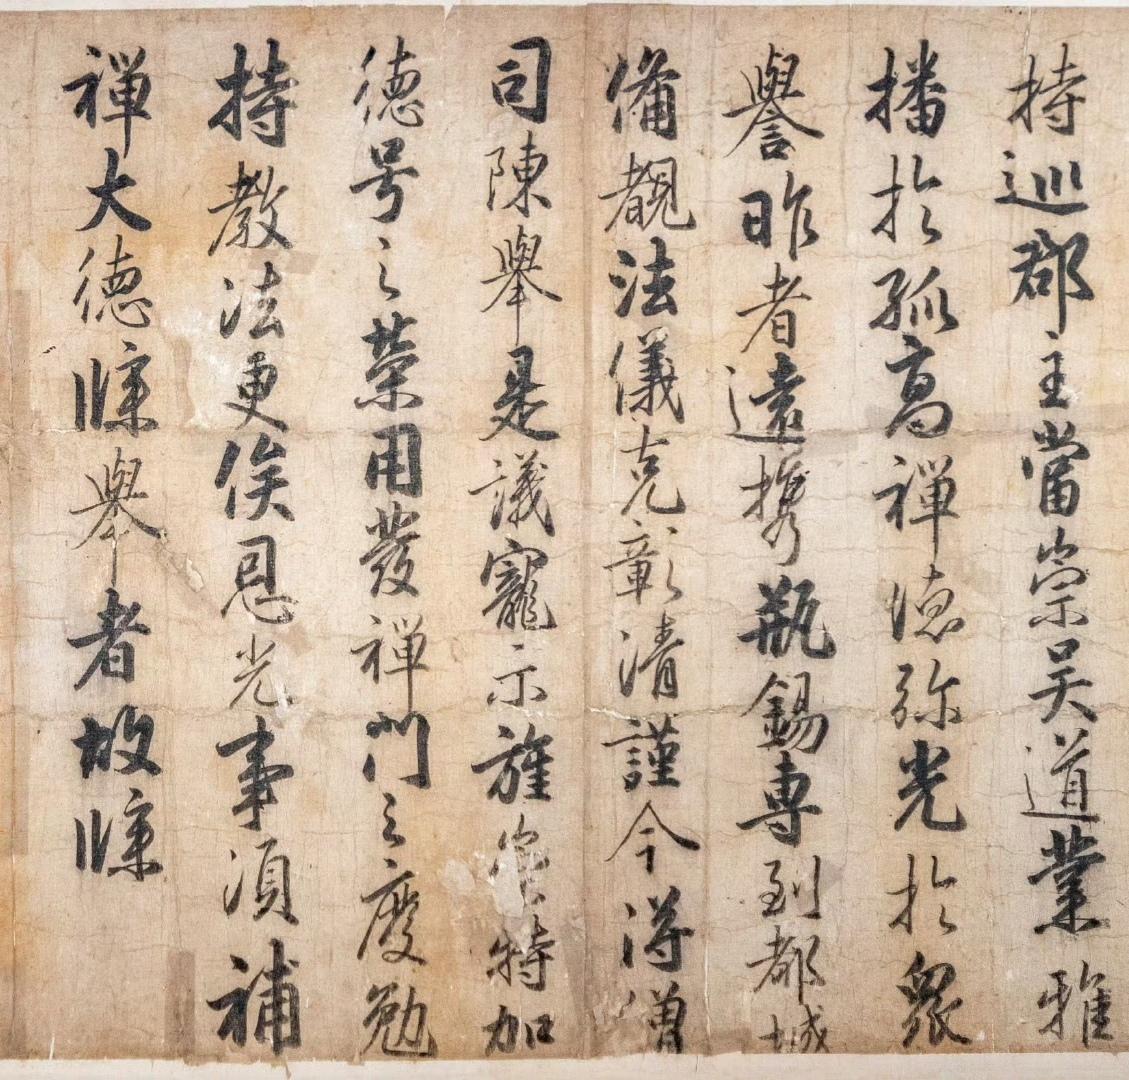 持巡郡主當崇吴道業雅
播於孤高禅德弥光於衆
譽昨者遠携瓶錫専到都城
備覩法儀克彰清謹今得僧
司陳舉是議寵示旌特加
德号之榮用發禅門之慶勉
持教法更俟恩光事須補
禅大德牒舉者故牒